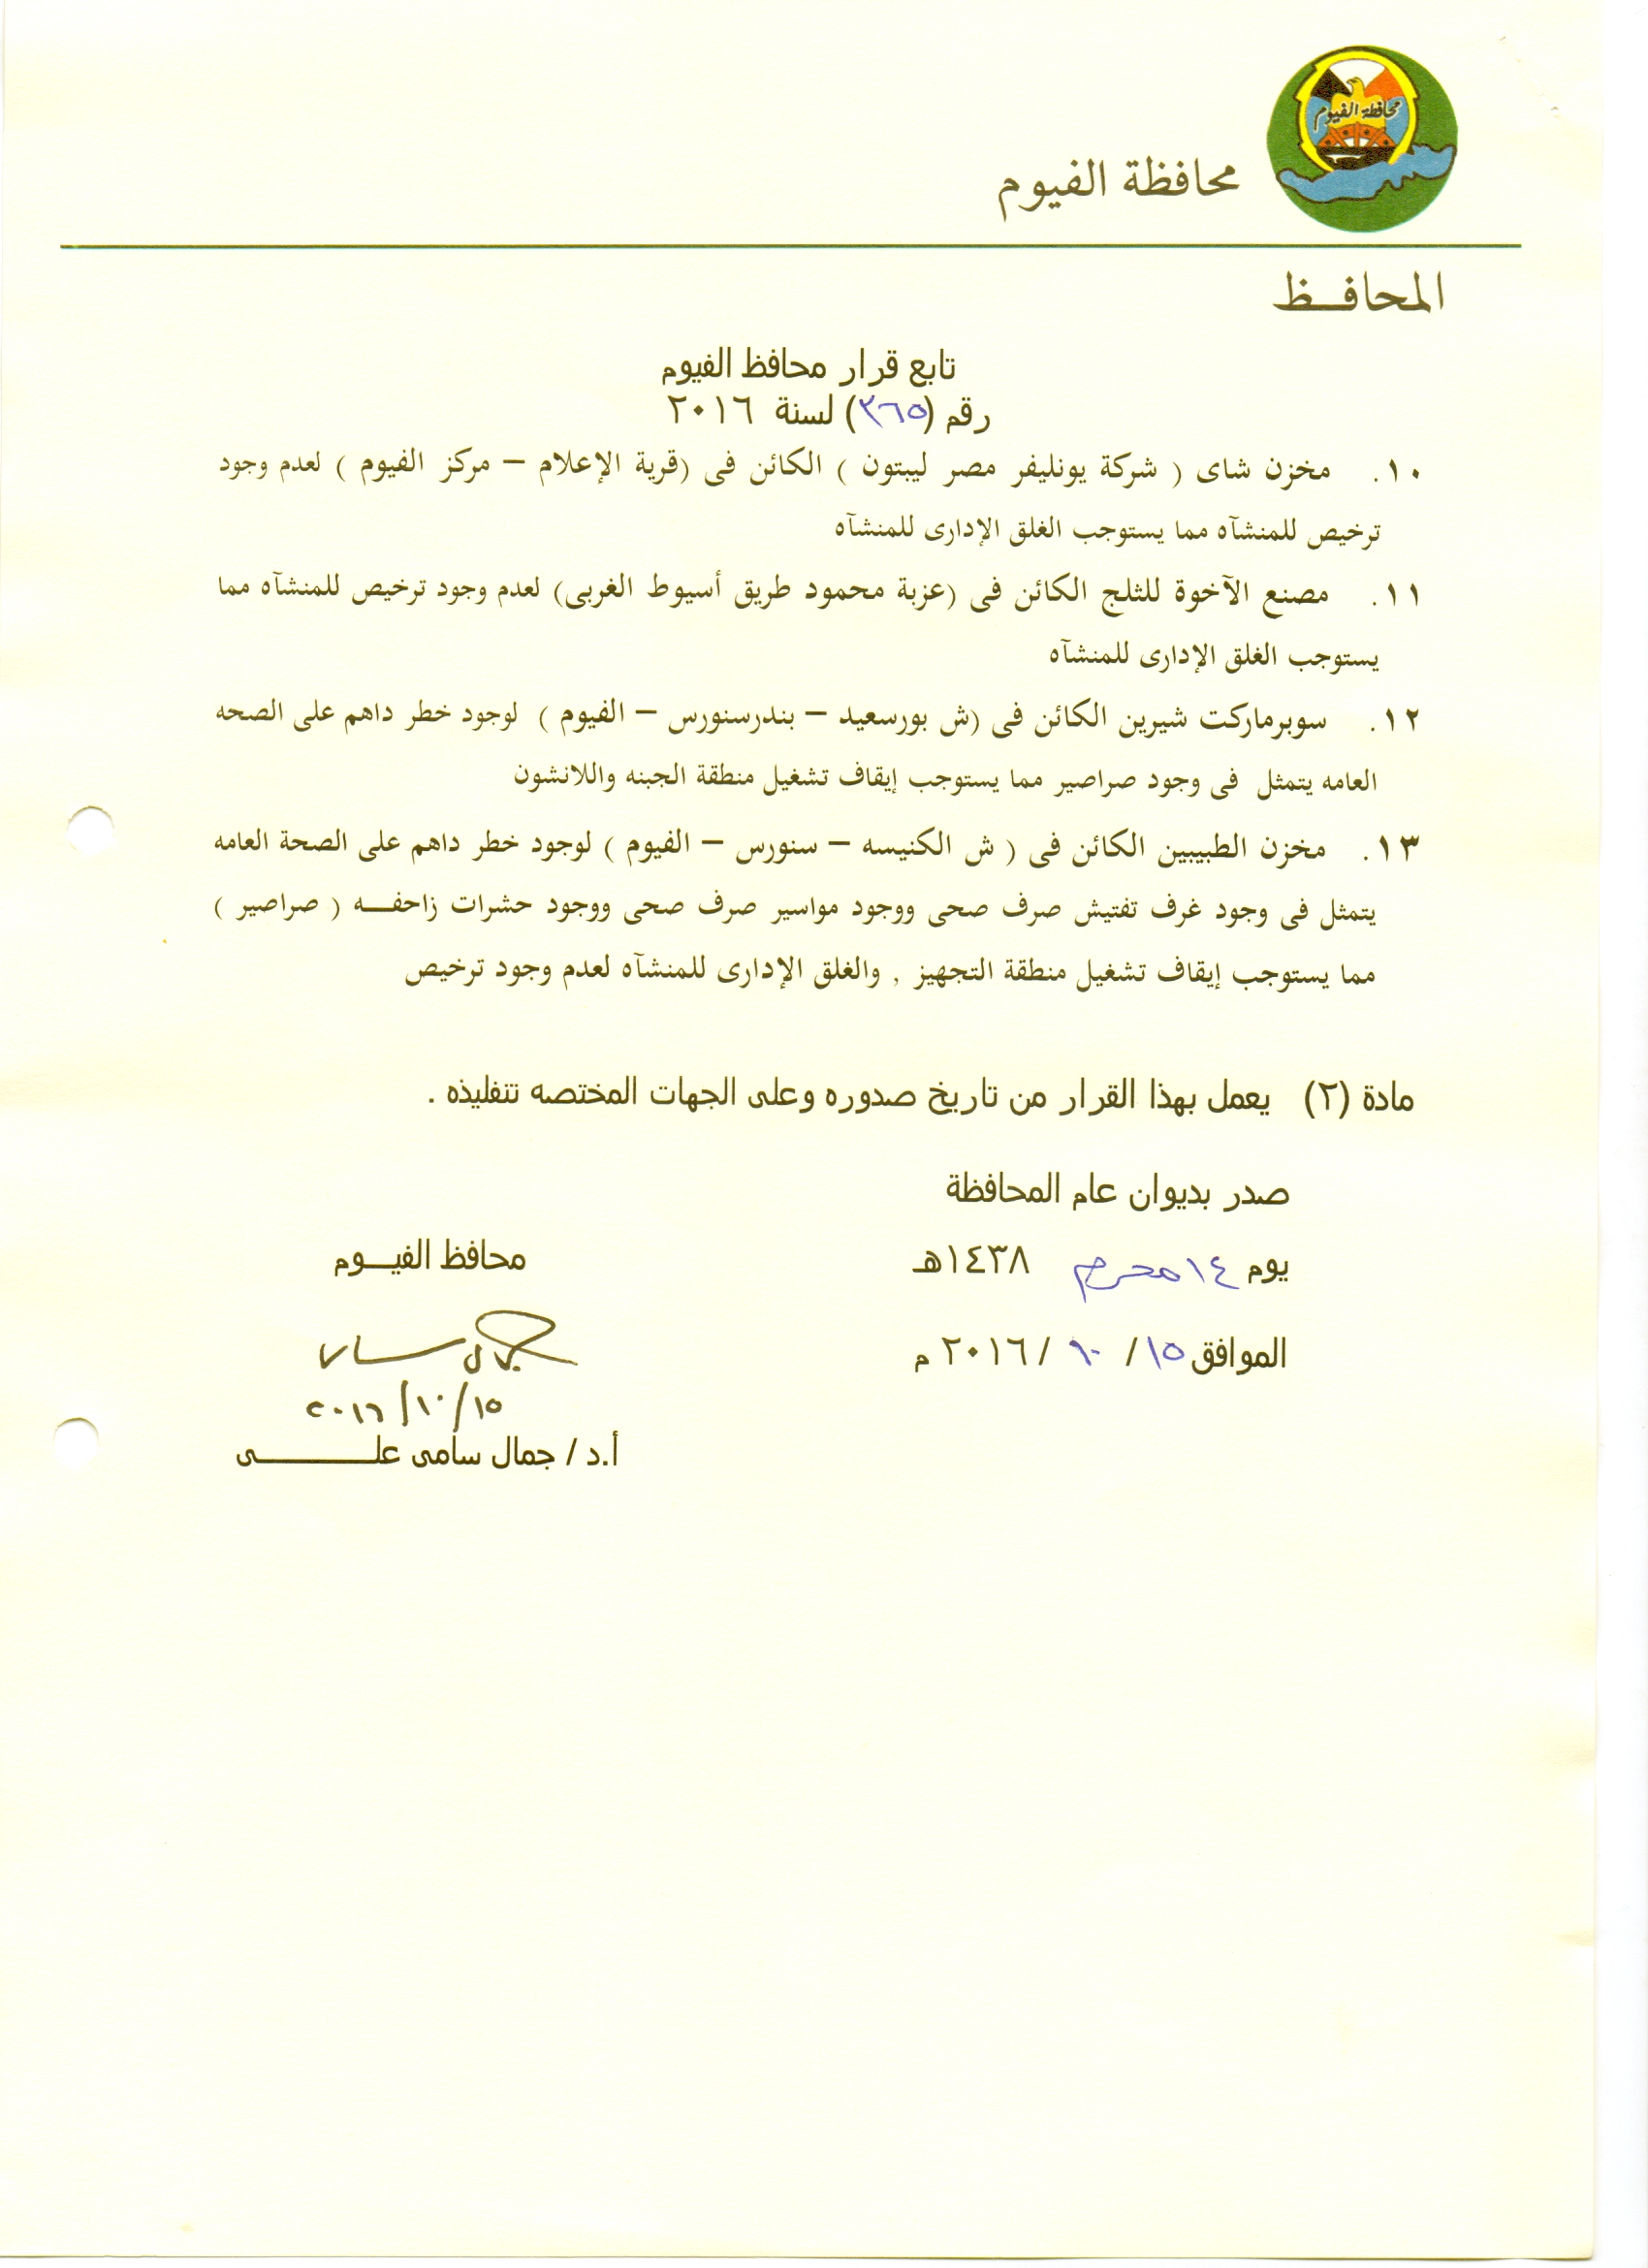 محافظة الفيوم
محافظة الفيوم
المحافــظ
تابع قرار محافظ الفيوم
رقم (٣٦٥) لسنة ٢٠١٦
١٠. مخزن شاى ( شركة يونليفر مصر ليبتون ) الكائن فى (قرية الإعلام – مركز الفيوم ) لعدم وجود
ترخيص للمنشآه مما يستوجب الغلق الإدارى للمنشآه
١١. مصنع الآخوة للثلج الكائن فى (عزبة محمود طريق أسيوط الغربى) لعدم وجود ترخيص للمنشآه مما
يستوجب الغلق الإدارى للمنشآه
١٢. سوبرماركت شيرين الكائن فى (ش بورسعيد – بندرسنورس – الفيوم ) لوجود خطر داهم على الصحه
العامه يتمثل فى وجود صراصير مما يستوجب إيقاف تشغيل منطقة الجبنه واللانشون
١٣. مخزن الطبيبين الكائن فى ( ش الكنيسه – سنورس – الفيوم ) لوجود خطر داهم على الصحة العامه
يتمثل فى وجود غرف تفتيش صرف صحى ووجود مواسير صرف صحى ووجود حشرات زاحفــه ( صراصير )
مما يستوجب إيقاف تشغيل منطقة التجهيز , والغلق الإدارى للمنشآه لعدم وجود ترخيص
مادة (٢) يعمل بهذا القرار من تاريخ صدوره وعلى الجهات المختصه تنفليذه .
صدر بديوان عام المحافظة
يوم ١٤ محرم ١٤٣٨هـ
محافظ الفيــوم
الموافق ١٥ / ١٠ / ٢٠١٦ م
١٥/١٠/٢٠١٦
أ.د / جمال سامى علــــــــى